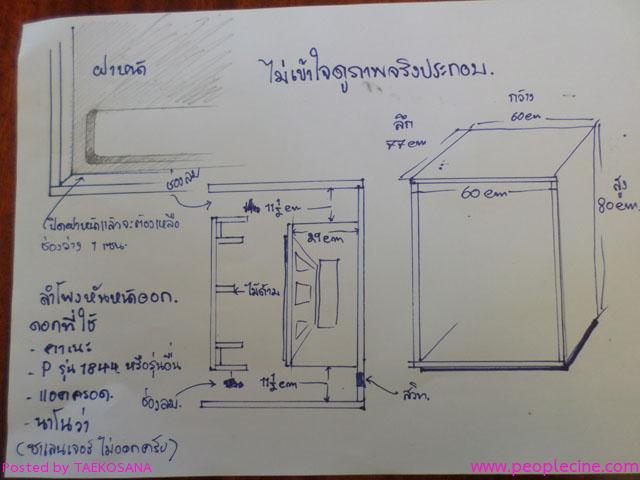 ไม่เข้าใจดูภาพจริงประกอบ.
ฝาหน้า
กว้าง
60cm
ลึก
77cm
60cm
สูง
80cm.
ช่องลม
ปิดฝาหน้าแล้วจะต้องเหลือ
ช่องว่าง 1 เซน.
11½cm
29cm
ไม้ด้าม
11½cm
ช่องลม.
ลำโพงหันหน้าออก.
ดอกที่ใช้
- คาเนะ
- P รุ่น 1844 หรือรุ่นอื่น
- แอตครอด.
- นาโนว่า
(ชาเลนเจอร์ ไม่ออกครับ)
Posted by TAEKOSANA
www.peoplecine.com